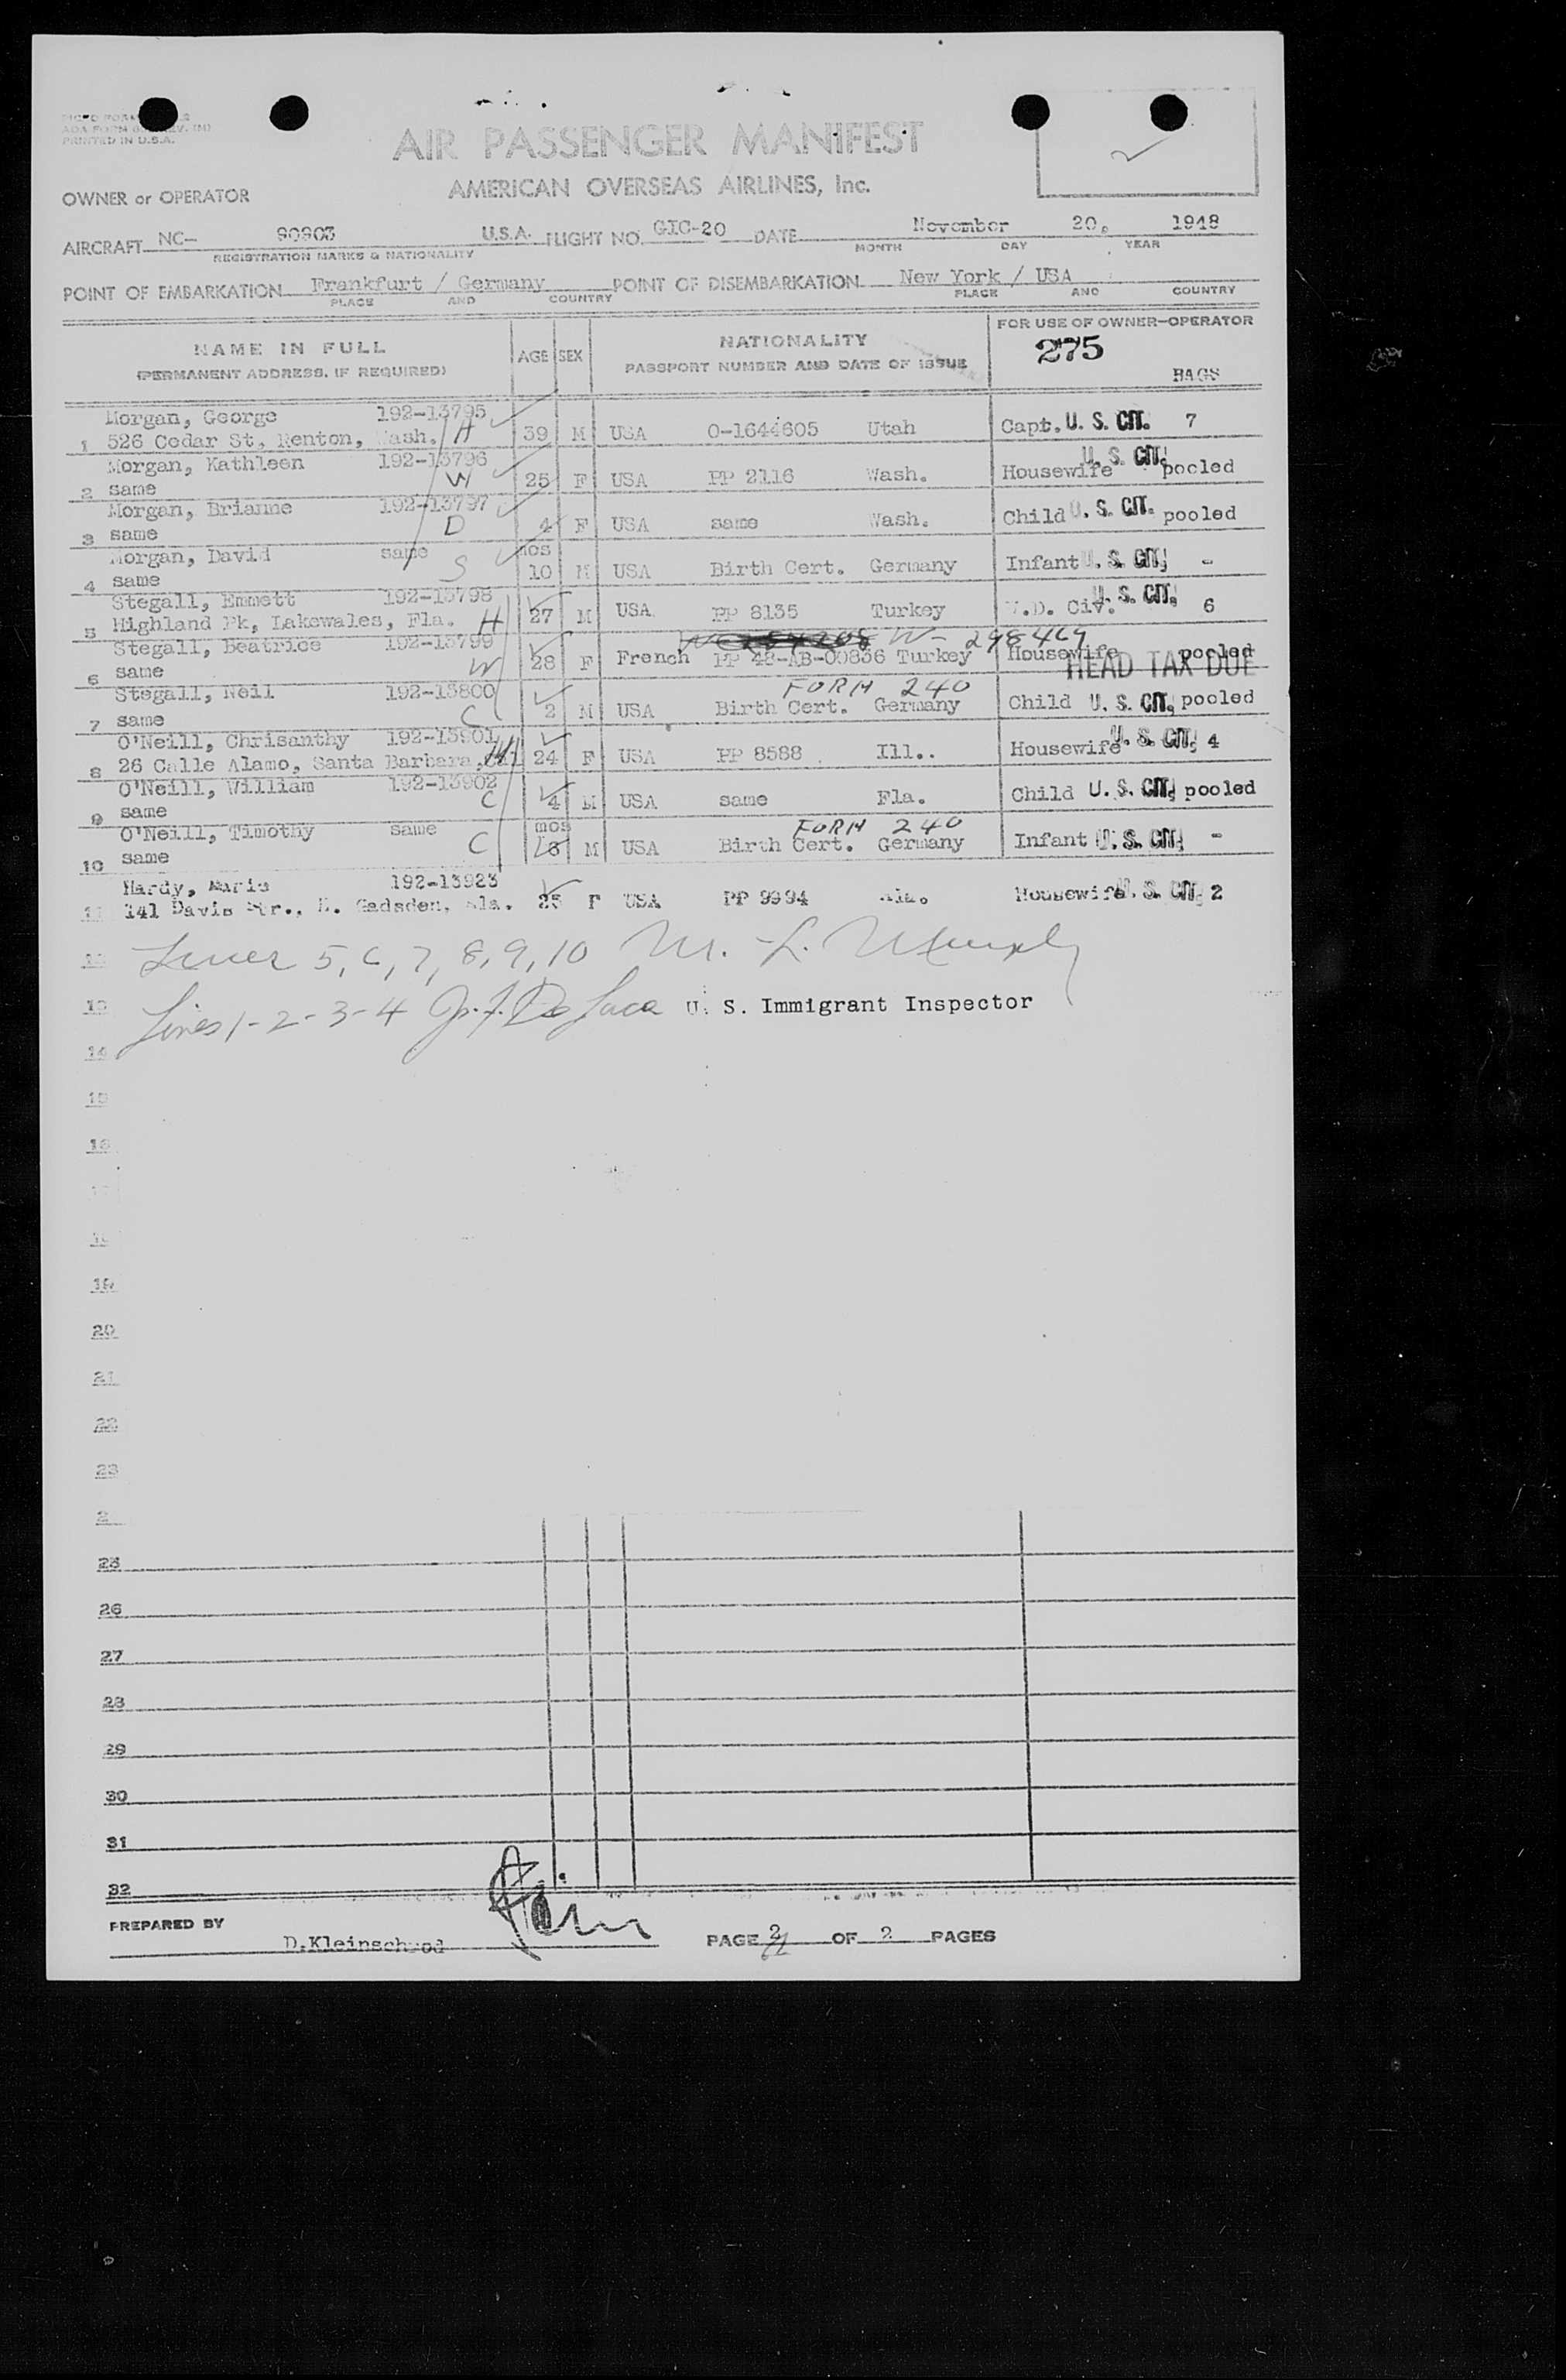 PRINTED IN U.S.A.
AIR PASSENGER MANIFEST
OWNER or OPERATOR AMERICAN OVERSEAS AIRLINES, Inc.
AIRCRAFT NC- 90903 U.S.A. FLIGHT NO. GIC-20 DATE November 20, 1948
REGISTRATION MARKS & NATIONALITY MONTH DAY YEAR
POINT OF EMBARKATION Frankfurt / Germany POINT OF DISEMBARKATION New York / USA
PLACE AND COUNTRY PLACE AND COUNTRY
NAME IN FULL AGE SEX NATIONALITY FOR USE OF OWNER-OPERATOR
(PERMANENT ADDRESS, IF REQUIRED) PASSPORT NUMBER AND DATE OF ISSUE 275
BAGS
Morgan, George 192-13795
1 526 Cedar St, Renton, Wash. H 39 M USA O-1644605 Utah Capt. U. S. CIT. 7
Morgan, Kathleen 192-13796
2 same W 25 F USA PP 2116 Wash. Housewife U. S. CIT. pooled
Morgan, Brianne 192-13797
3 same D 4 F USA same Wash. Child U. S. CIT. pooled
Morgan, David same mos
4 same S 10 M USA Birth Cert. Germany Infant U. S. CIT. -
Stegall, Emmett 192-13798
5 Highland Pk, Lakewales, Fla. H 27 M USA PP 8135 Turkey W.D. Civ. U. S. CIT. 6
Stegall, Beatrice 192-13799 W- 298469
6 same W 28 F French PP 48-AB-00836 Turkey Housewife pooled
HEAD TAX DUE
Stegall, Neil 192-13800 FORM 240
7 same C 2 M USA Birth Cert. Germany Child U. S. CIT. pooled
O'Neill, Chrisanthy 192-13901
8 26 Calle Alamo, Santa Barbara, Cal 24 F USA PP 8588 Ill.. Housewife U. S. CIT. 4
O'Neill, William 192-13902
9 same C 4 M USA same Fla. Child U. S. CIT. pooled
O'Neill, Timothy same mos FORM 240
10 same C M USA Birth Cert. Germany Infant U. S. CIT. -
Hardy, Marie 192-13923
11 141 Davis Str., N. Gadsden, Ala. 25 F USA PP 9994 Ala. Housewife U. S. CIT. 2
5, 6, 7, 8, 9, 10 M. L.
13 Lines 1-2-3-4 U. S. Immigrant Inspector
14
15
16
19
20
21
22
23
25
26
27
28
29
30
31
32
PREPARED BY
PAGE 2 OF 2 PAGES